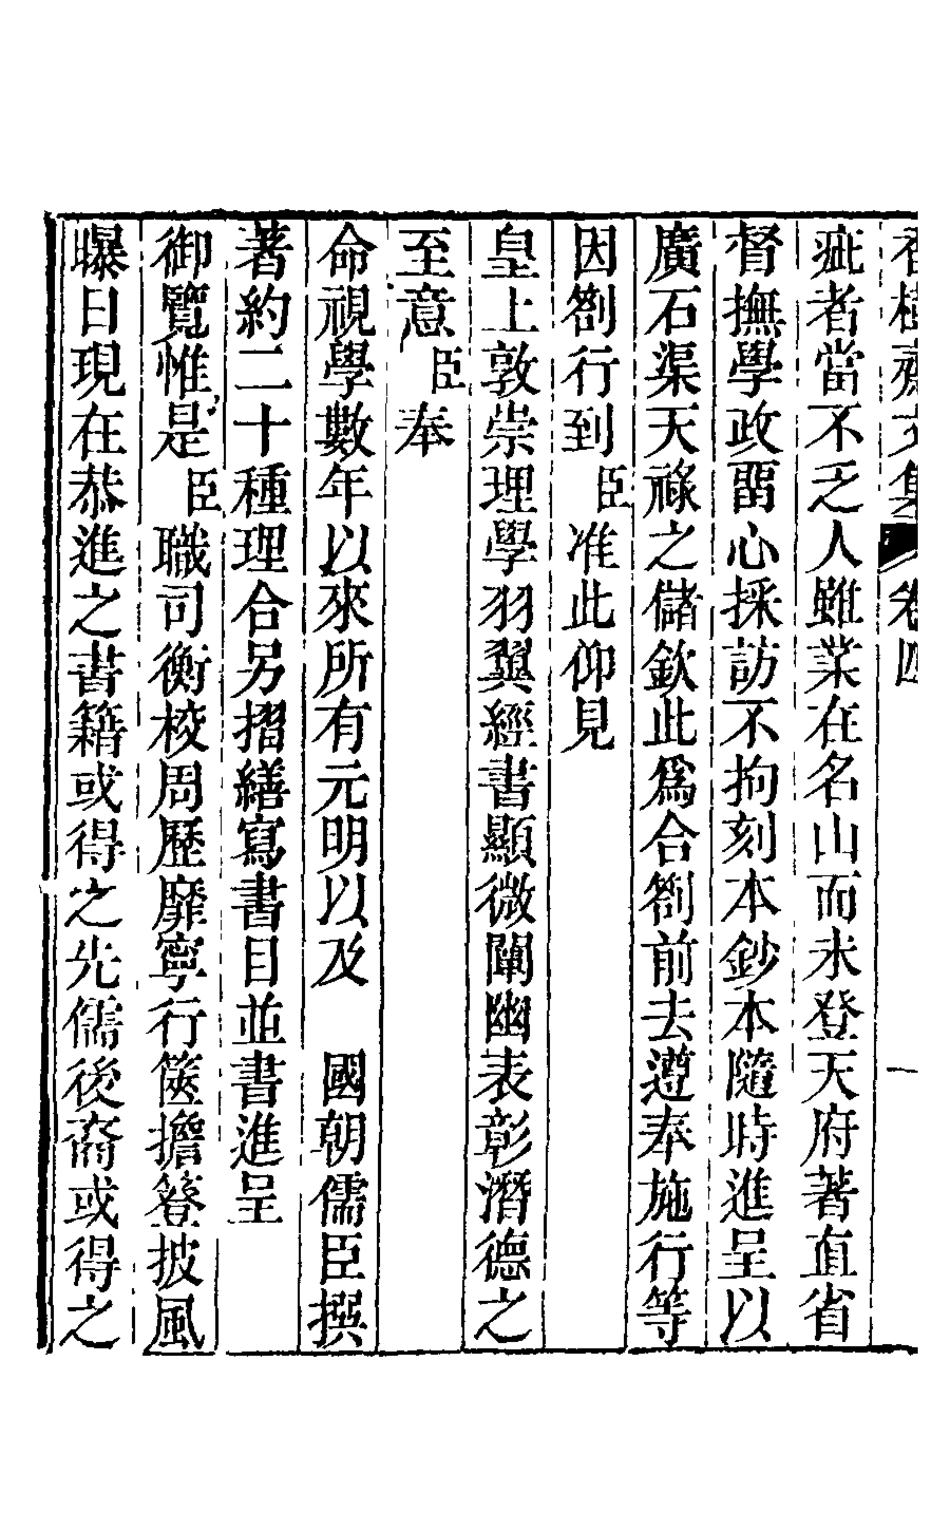 香樹齋文集 卷四 一
疵者當不乏人雖業在名山而未登天府著直省
督撫學政畱心採訪不拘刻本鈔本隨時進呈以
廣石渠天祿之儲欽此爲合劄前去遵奉施行等
因劄行到臣准此仰見
皇上敦崇理學羽翼經書顯微闡幽表彰潛德之
至意臣奉
命視學數年以來所有元明以及　國朝儒臣撰
著約二十種理合另摺繕寫書目並書進呈
御覽惟是臣職司衡校周歷靡寧行篋擔簦披風
曝日現在恭進之書籍或得之先儒後裔或得之